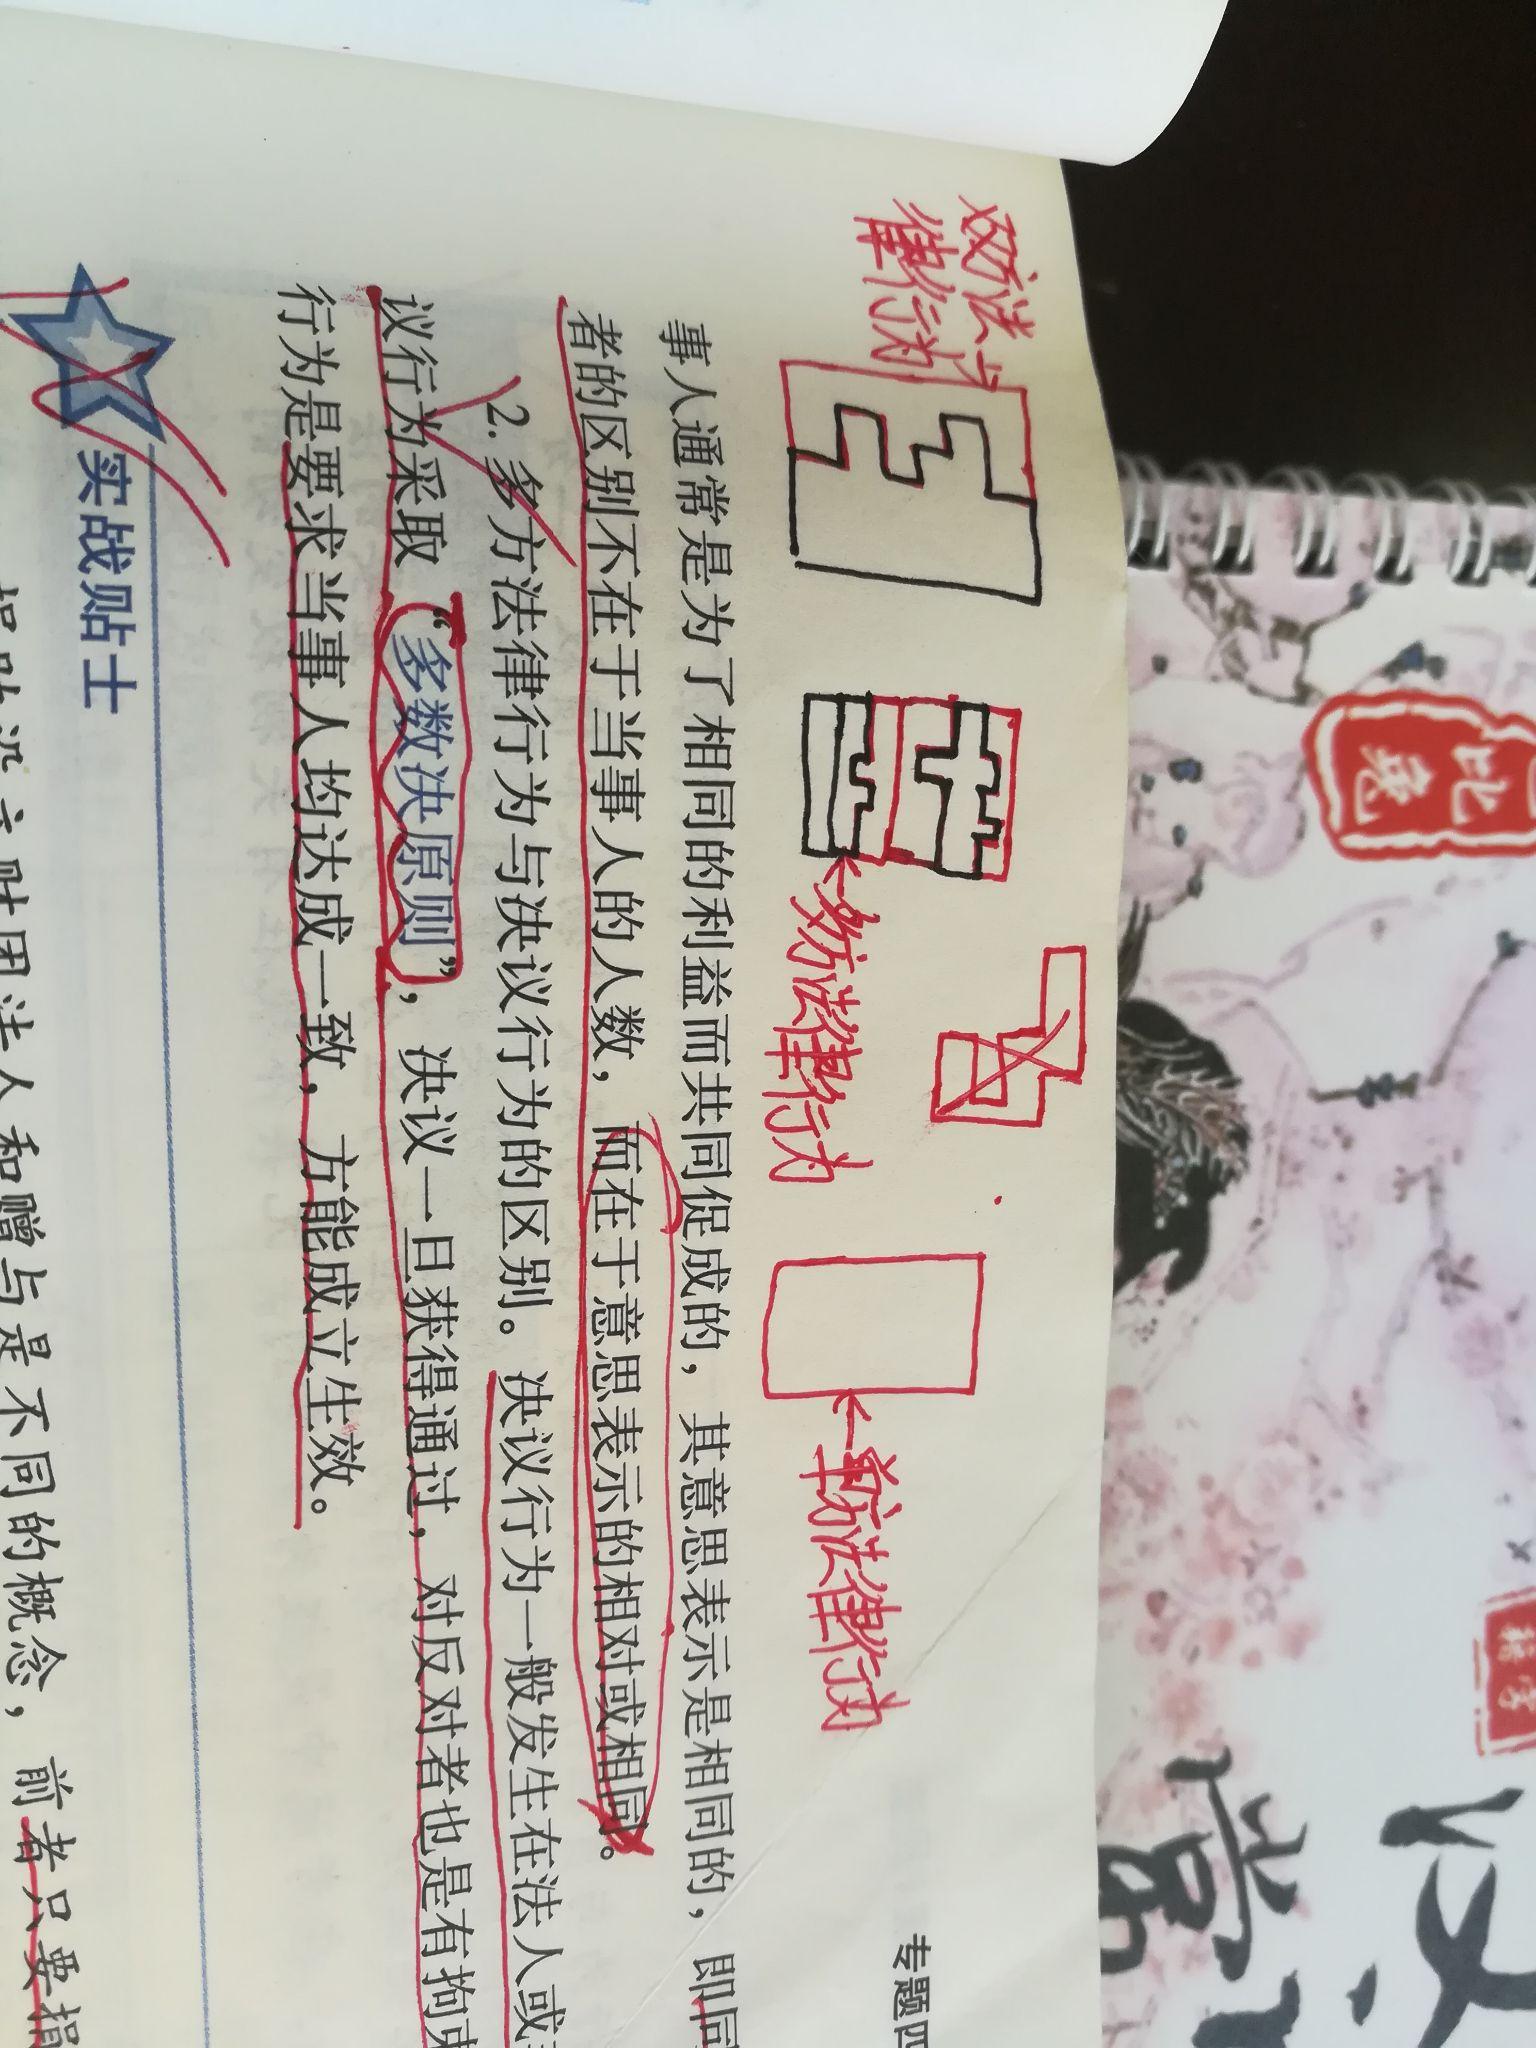 专题四
双方法
律行为
多方法律行为
单方法律行为
事人通常是为了相同的利益而共同促成的，其意思表示是相同的，即同
者的区别不在于当事人的人数，而在于意思表示的相对或相同。
2. 多方法律行为与决议行为的区别。决议行为一般发生在法人或
议行为采取“多数决原则”，决议一旦获得通过，对反对者也是有拘束
行为是要求当事人均达成一致，方能成立生效。
实战贴士
捐助设立财团法人和赠与是不同的概念，前者只要捐